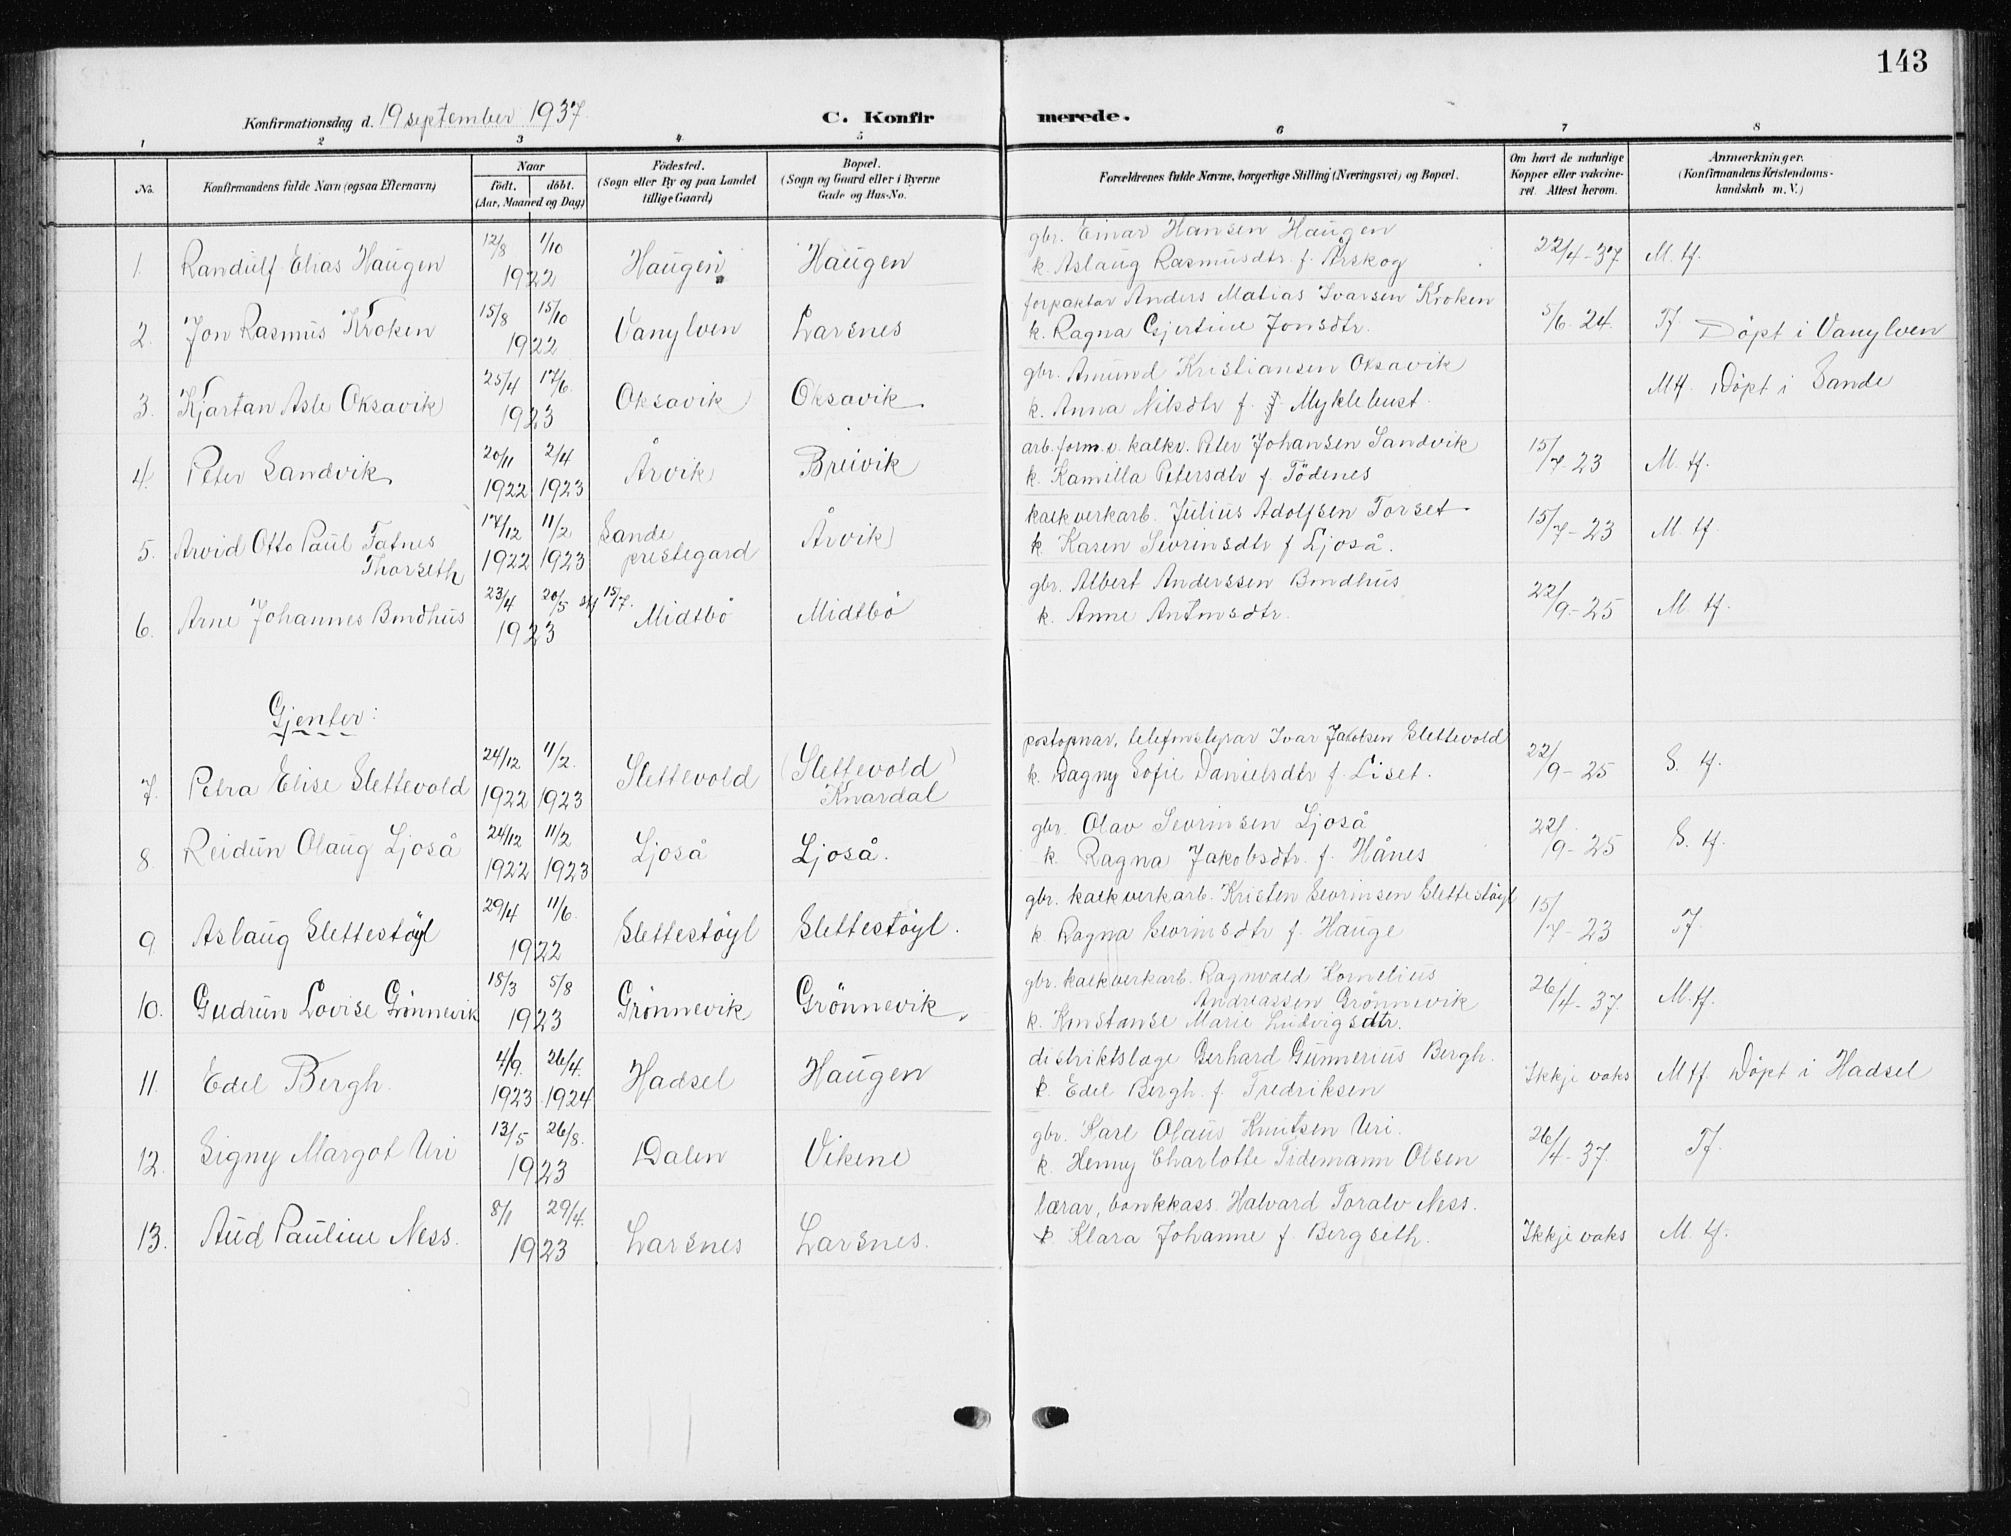 143
Konfirmationsdag d. 19 september 1937.
C. Konfirmerede.
1 2 3 4 5 6 7 8
No.
Konfirmandens fulde Navn (ogsaa Efternavn)
Naar
födt. döbt.
(Aar, Maaned og Dag)
Födested.
(Sogn eller By og paa Landet
tillige Gaard)
Bopæl.
(Sogn og Gaard eller i Byerne
Gade og Hus-No.
Forældrenes fulde Navne, borgerlige Stilling (Næringsvei) og Bopæl.
Om havt de naturlige
Kopper eller vakcine-
ret. Attest herom.
Anmærkninger.
(Konfirmandens Kristendoms-
kundskab m. V.)
1. Randulf Elias Haugen 12/8 1/10 1922 Haugen Haugen
gbr. Einar Hansen Haugen
k. Aslaug Rasmusdtr. f. Årskog
22/4-37 M. tf.
2. Jon Rasmus Kroken 15/8 15/10 1922 Vanylven Larsnes
forpaktar Anders Matias Ivarsen Kroken
k. Ragna Gjertine Jonsdtr.
5/6-24. Tf. Döpt i Vanylven
3. Kjartan Asle Oksavik 25/4 17/6. 1923 Oksavik Oksavik
gbr. Amund Kristiansen Oksavik
k. Anna Nilsdtr f. Myklebust.
Mtf. Döpt i Sande
4. Peter Sandvik 20/11 2/4 1922 1923 Årvik Breivik
arb.form. v. kalkv. Peter Johansen Sandvik
k. Kamilla Petersdtr f. Tödenes
15/7-23 M. tf.
5. Arvid Otto Paul Tafnes
Thorseth
17/12 11/2 1922 1923
Sande
prestegard
Årvik
kalkverkarb. Julius Adolfsen Torset
k Karen Sevrinsdtr f Ljoså.
15/7-23 M. tf.
6. Arne Johannes Bondhus 23/4 20/5 15/7. 1923 Midtbö Midtbö
gbr. Albert Anderssen Bondhus
k. Anne Antonsdtr.
22/9-25 M. tf.
Gjenter:
7. Petra Elise Slettevold 24/12 11/2. 1922 1923 Slettevold (Slettevold)
Knardal
postopnar, telefonstyrar Ivar Jakobsen Slettevold
k. Dagny Sofie Danielsdtr f. Liset.
22/9-25 S. tf.
8. Reidun Olaug Ljoså 24/12 11/2 1922 1923 Ljoså Ljoså.
gbr. Olav Sevrinsen Ljoså
k. Ragna Jakobsdtr. f. Hånes
22/9-25 S. tf.
9. Aslaug Slettestöyl 29/4 11/6. 1922 Slettestöyl Slettestöyl.
gbr. kalkverkarb. Kristen Sevrinsen Slettestöyl
k Dagna Sevrinsdtr f. Hauge
15/7-23 Tf.
10. Gudrun Lovise Grönnevik 18/3 5/8 1923 Grönnevik Grönnevik
gbr. kalkverkarb. Ragnvald Kornelius
Andreassen Grönnevik
k. Konstanse Marie Ludvigsdtr.
26/4-37. M.tf.
11. Edel Bergh. 4/9. 26/4. 1923 1924 Hadsel Haugen
distriktslæge Gerhard Gunnerius Bergh.
k Edel Bergh. f. Fredriksen
Ikkje vaks Mtf. Döpt i Hadsel
12. Signy Margot Uri 13/5 26/8. 1923 Dalen Vikene
gbr. Karl Olaus Knutsen Uri.
k. Henny Charlotte Tidemann Olsen
26/4-37. Tf.
13. Aud Pauline Ness. 8/1 29/4. 1923 Larsnes Larsnes.
lærar, bankkass. Halvard Toralv Ness.
k. Klara Johanne f. Bergseth.
Ikkje vaks M. tf.